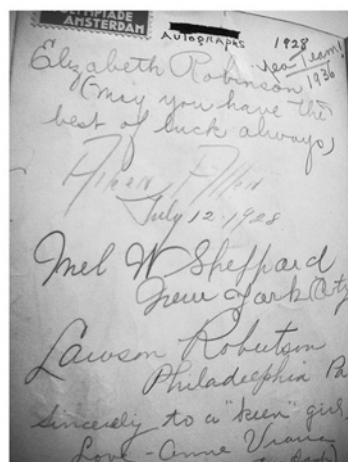 OLYMPIADE
AMSTERDAM
AUTOGRAPHS
1928
Yea Team!
1936
Elizabeth Robinson
(May you have the
best of luck always)
July 12-1928
Mel W Sheppard
New York City
Lawson Robertson
Philadelphia Pa
Sincerely to a "keen" girl,
Love - Anne Vrana